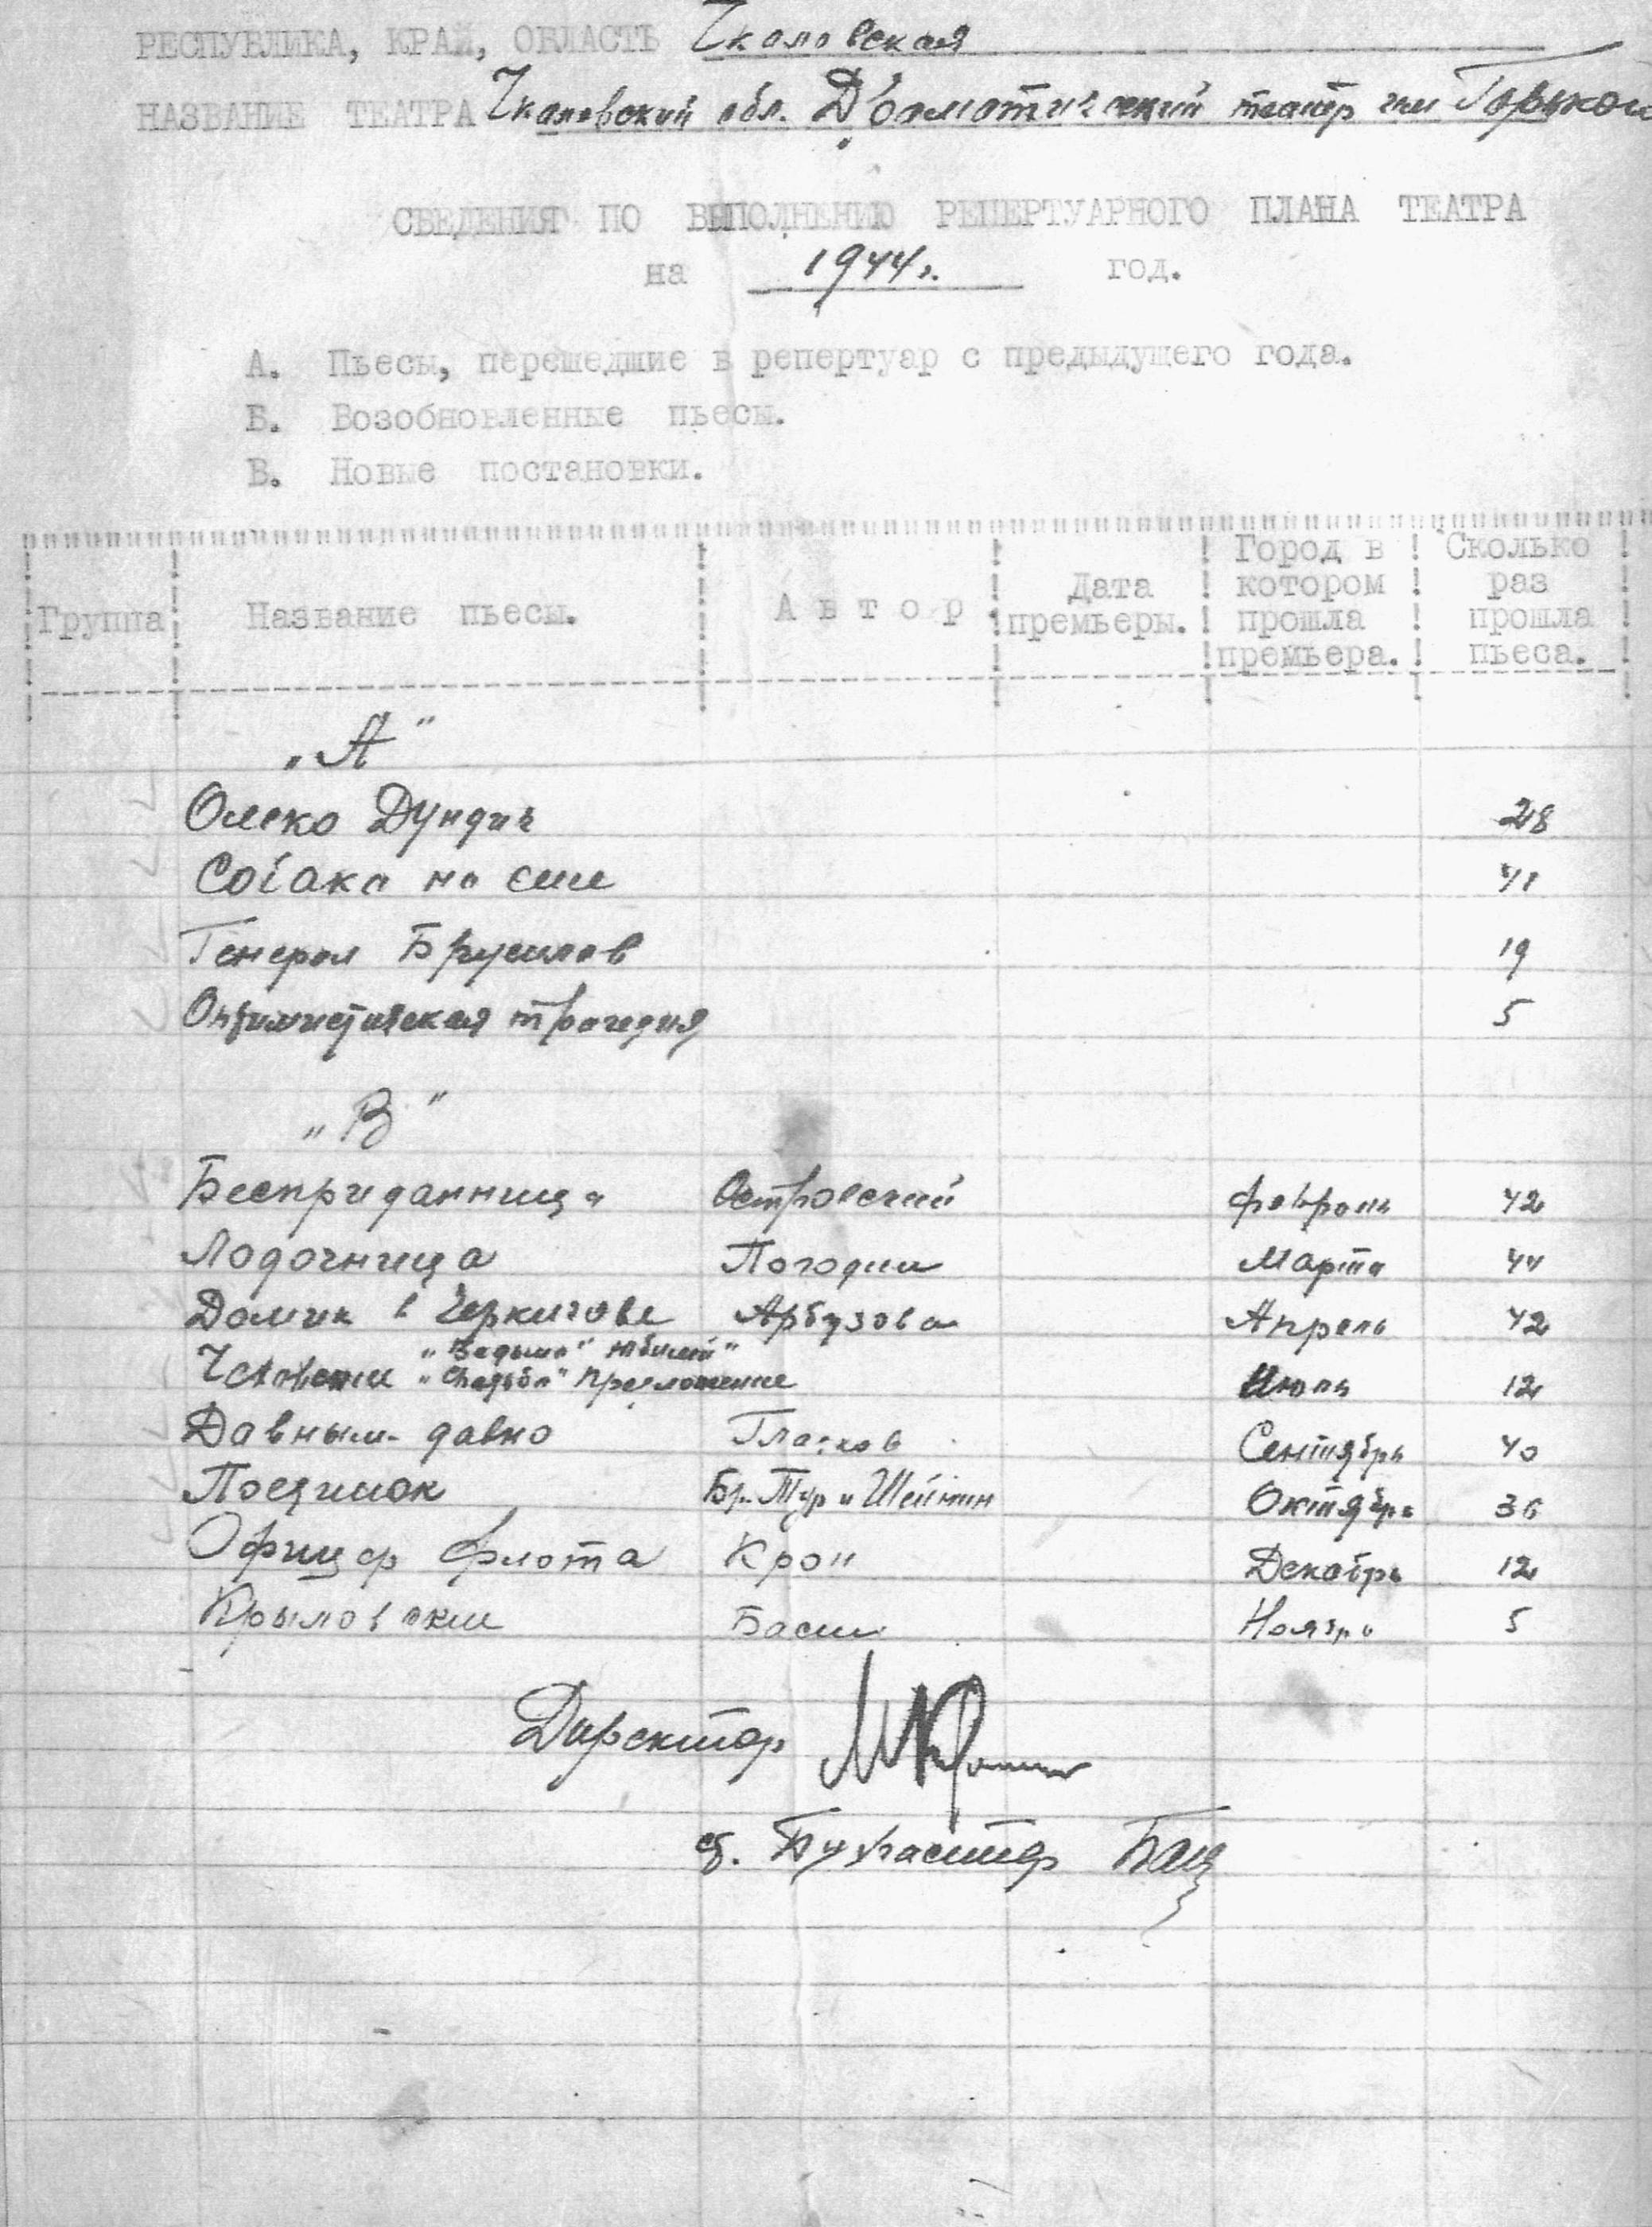 РЕСПУБЛИКА, КРАЙ, ОБЛАСТЬ Чкаловская
НАЗВАНИЕ ТЕАТРА Чкаловский обл. Драматический театр им Горького
СВЕДЕНИЯ ПО ВЫПОЛНЕНИЮ РЕПЕРТУАРНОГО ПЛАНА ТЕАТРА
на 1944г. год.
А. Пьесы, перешедшие в репертуар с предыдущего года.
Б. Возобновленные пьесы.
В. Новые постановки.
Группа Название пьесы. Автор Дата премьеры. Город в котором прошла премьера. Сколько раз прошла пьеса.
„А"
Олеко Дундич 28
Собака на сене 41
Генерал Брусилов 19
Оптимистическая трагедия 5
„В"
Бесприданница Островский февраль 42
Лодочница Погодин Марта 44
Домик в Черкизове Арбузова Апрель 42
„Ведьма" Юбилей"
Чеховские „Свадьба" Предложение Июль 12
Давным-давно Гладков Сентябрь 40
Поединок Бр. Тур и Шейнин Октябрь 36
Офицер флота Крон Декабрь 12
Крыловские Басни Ноябрь 5
Директор
Бухгалтер